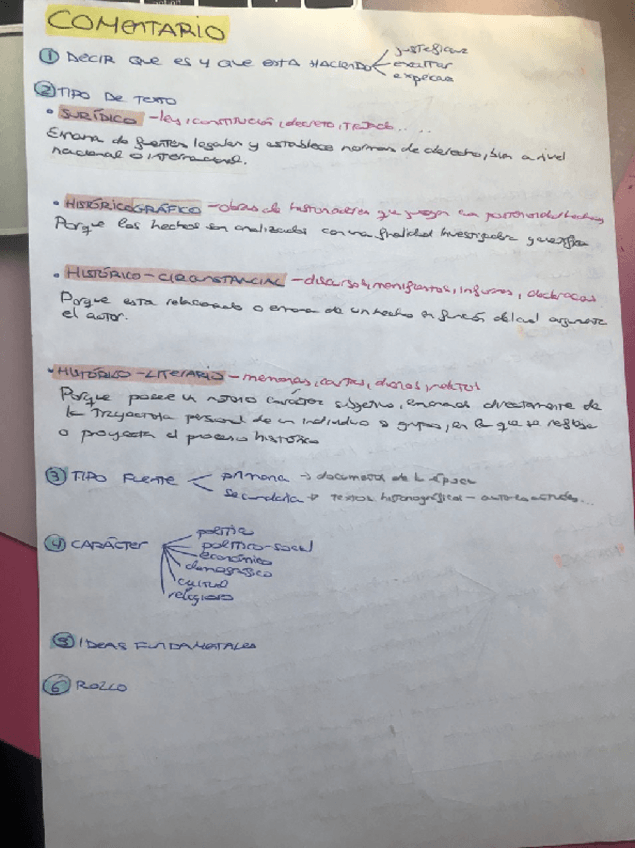 COMENTARIO
① DECIR QUE ES Y QUE ESTA HACIENDO
justificar
exaltar
expresa
② TIPO DE TEXTO
• JURÍDICO - ley, constitución, decreto, tratado....
Emana de fuentes legales y establece normas de derecho, bien a nivel
nacional o internacional.
• HISTÓRICOGRÁFICO - obras de historiadores que juzgan con posterioridad hechos
Porque los hechos son analizados con una finalidad investigadora y
• HISTÓRICO-CIRCUNSTANCIAL - discursos, manifiestos, informes,
Porque esta relacionado o emana de un hecho en función del cual argumenta
el autor.
• HISTÓRICO-LITERARIO - memorias, cartas, diarios, relatos
Porque posee un notorio carácter subjetivo, emanado directamente de
la trayectoria personal de un individuo o grupo, en la que se refleja
o proyecta el proceso histórico
③ TIPO FUENTE
primaria → documentos de la época
secundaria → textos historiográficos - autores actuales...
④ CARÁCTER
político
político-social
económico
demográfico
cultural
religioso
⑤ IDEAS FUNDAMENTALES
⑥ ROLLO